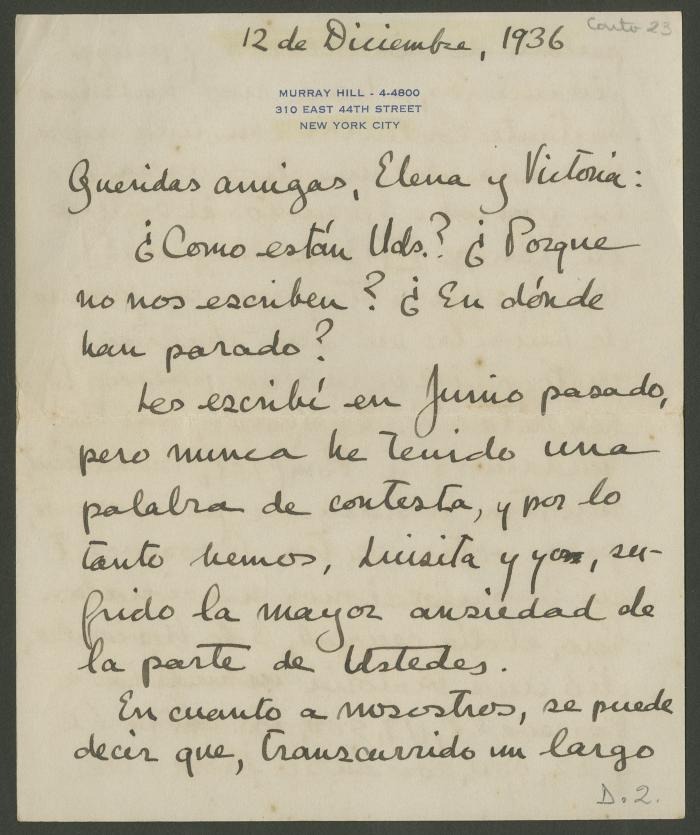 12 de Diciembre, 1936
Carta 23
MURRAY HILL - 4-4800
310 EAST 44TH STREET
NEW YORK CITY
Queridas amigas, Elena y Victoria:
¿Como están Uds.? ¿Porque
no nos escriben? ¿En dónde
han parado?
Les escribí en Junio pasado,
pero nunca he tenido una
palabra de contesta, y por lo
tanto hemos, Luisita y yo, su-
frido la mayor ansiedad de
la parte de Ustedes.
En cuanto a nosostros, se puede
decir que, transcurrido un largo
D.2.